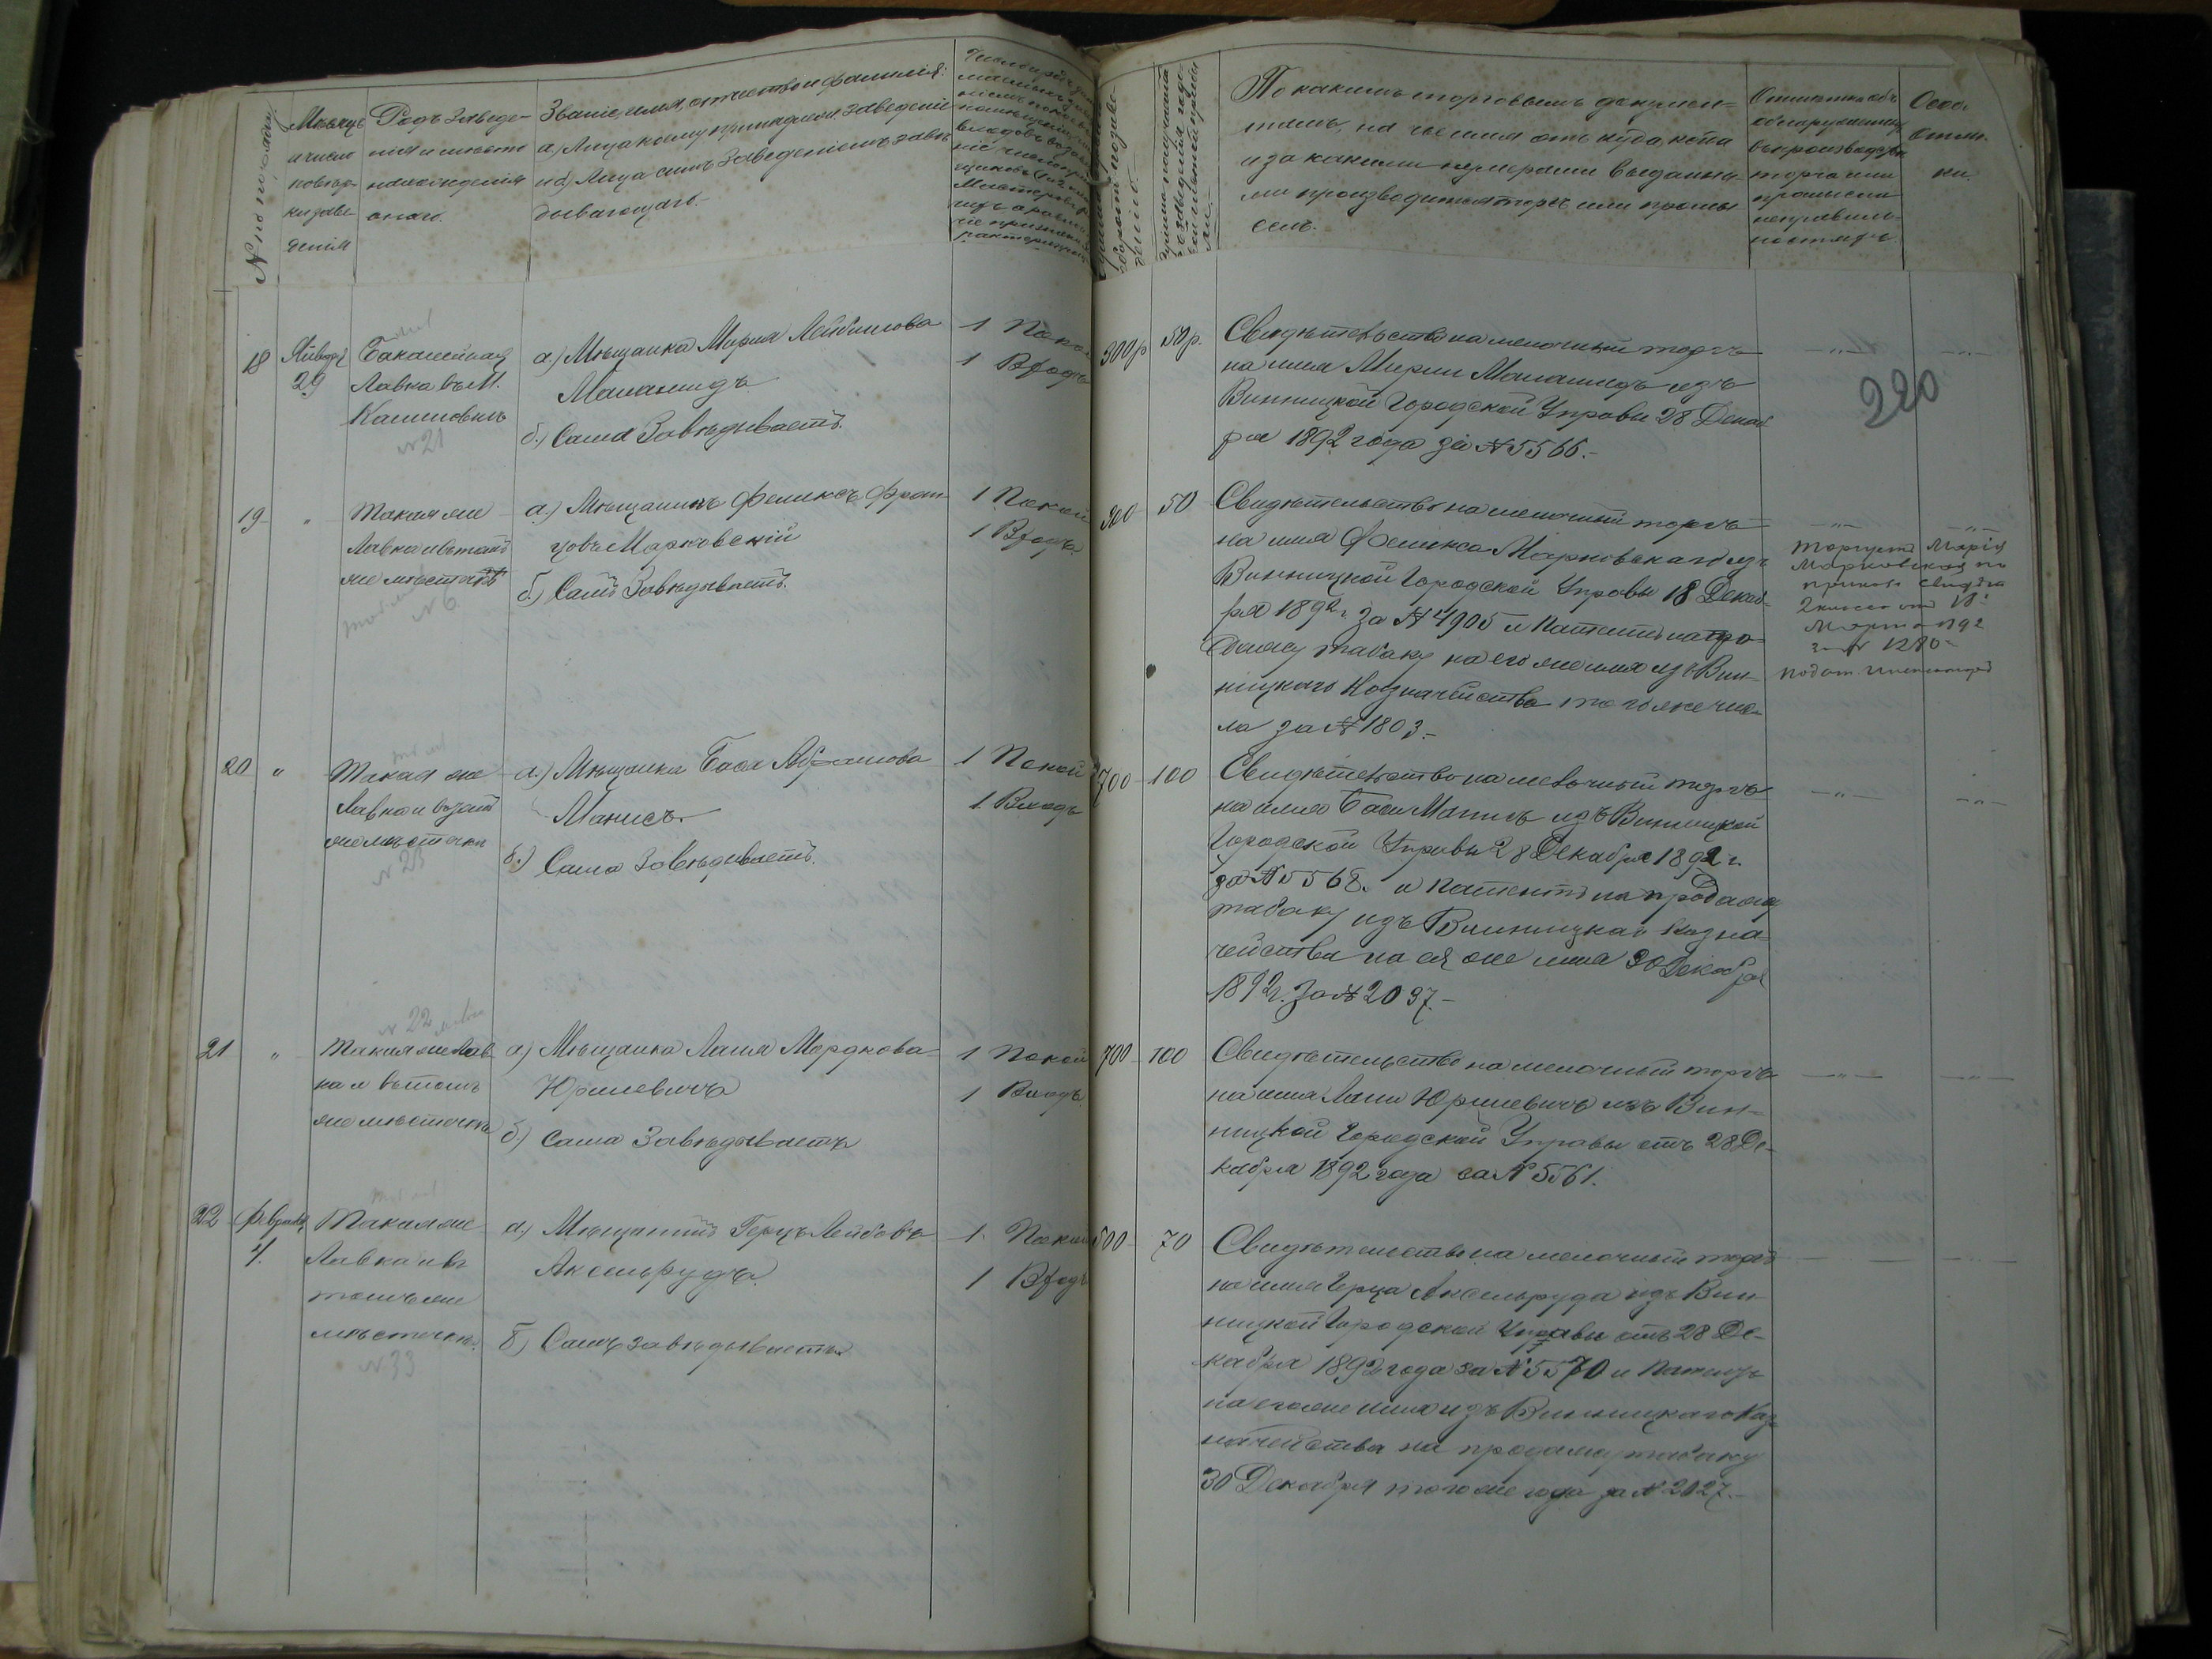 № по порядку
Мѣсяцъ
и число
повѣр-
ки заве
денія
Родъ Заведе-
нія и мѣсто
нахожденія
онаго.
Званіе, имя, отчество и фамилія:
а) Лица кому принадлеж. заведеніе
и б) Лица симъ Заведеніемъ завѣ
дывающаго.
По какимъ торговымъ докумен-
тамъ, на чье имя откуда, когда
и за какими нумерами выданны-
ми производится торгъ или промы
селъ.
Отмѣтка объ
обнаруженныхъ
въ производствѣ
торга или
промысла
неправиль-
ностяхъ.
Особ.
отмѣт-
ки.
220
18
Январь
29
Бакалейная
Лавка въ М.
Калиновкѣ
№ 21
а) Мѣщанка Мирля Лейбишова
Маламидъ
б) Сама Завѣдываетъ.
1 Покой
1 Входъ
300 р
50 р.
Свидѣтельство на мелочный торгъ
на имя Мирли Маламидъ изъ
Винницкой Городской Управы 28 Декаб
ря 1892 года за № 5566.-
19
"
Такая же
Лавка и въ томъ
же мѣстечкѣ
№ 6
а) Мѣщанинъ Феликсъ Фран-
цовъ Марковскій
б) Самъ Завѣдываетъ.
1 Покой
1 Входъ
300
50
Свидѣтельство на мелочный торгъ
на имя Феликса Марковскаго изъ
Винницкой Городской Управы 18 Декаб-
ря 1892 г. за № 4905 и Патентъ на про-
дажу табаку на его же имя изъ Вин-
ницкаго Казначейства того же чис-
ла за № 1803.-
Торгуетъ Марія
Марковская по
свидѣт.
2 класса отъ 18
Марта 1892
за № 1280
Подат. Инспекторъ
20
"
Такая же
Лавка и въ томъ
же мѣстечкѣ
№ 23
а) Мѣщанка Бася Абрамова
Манисъ.
б) Сама Завѣдываетъ.
1 Покой
1 Входъ
700
100
Свидѣтельство на мелочный торгъ
на имя Баси Манисъ изъ Винницкой
Городской Управы 28 Декабря 1892 г.
за № 5568. и Патентъ на продажу
табаку изъ Винницкаго Казна-
чейства на ея же имя 30 Декабря
1892 г. за № 2037.-
№ 22
21
"
Такая же Лав
ка и въ томъ
же мѣстечкѣ
а) Мѣщанка Лаия Мордкова
Юрилевичъ
б) сама Завѣдываетъ
1 Покой
1 Входъ
700
100
Свидѣтельство на мелочный торгъ
на имя Лаии Юрилевичъ изъ Вин-
ницкой Городской Управы отъ 28 Де-
кабря 1892 года за № 5561.
22
Февраль
4.
Такая же
Лавка и въ
томъ же
мѣстечкѣ.
№ 33
а) Мѣщанинъ Герцъ Лейбовъ
Аксельрудъ
б) Самъ завѣдываетъ
1. Покой
1 Входъ
500
70
Свидѣтельство на мелочный торгъ
на имя Герца Аксельруда изъ Вин-
ницкой Городской Управы отъ 28 Де-
кабря 1892 года за № 5570 и Патентъ
на его же имя изъ Винницкаго Каз-
начейства на продажу табаку
30 Декабря того же года за № 2027.-